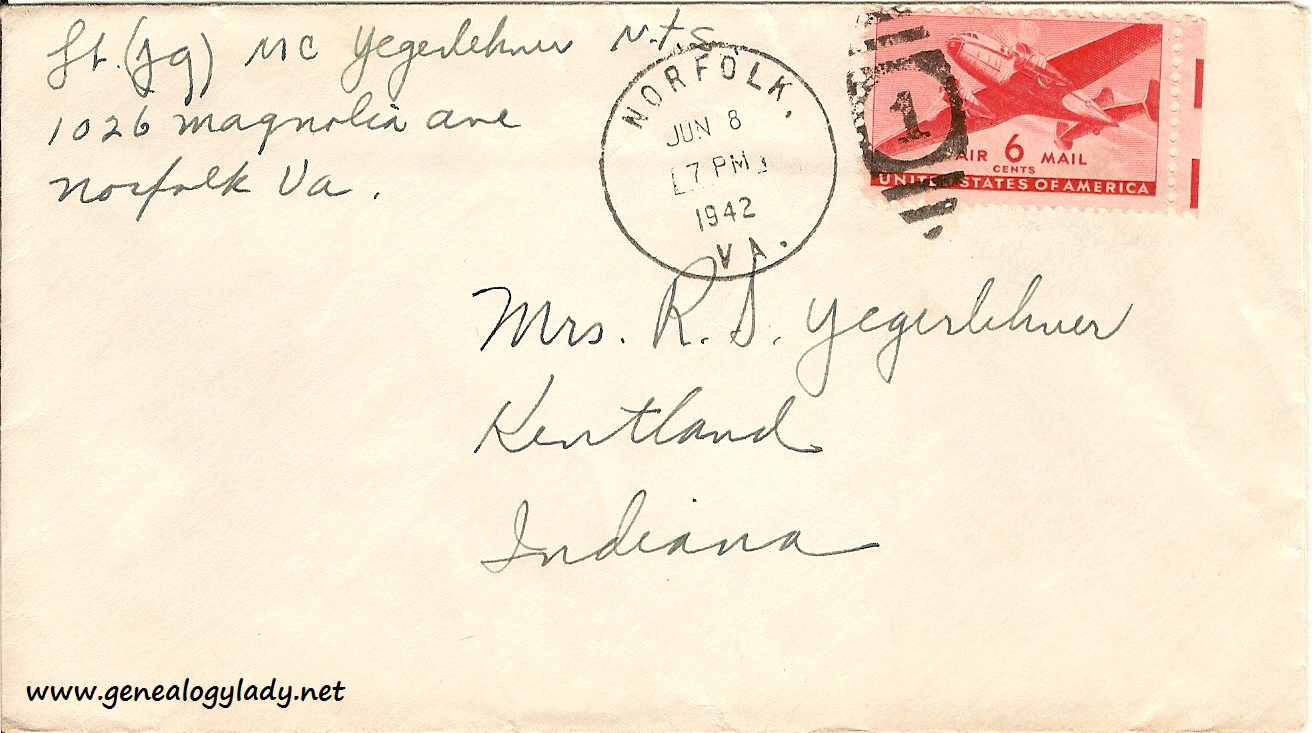 Lt. (jg) MC Yegerlehner N.T.S.
1026 Magnolia ave
Norfolk Va.
NORFOLK,
JUN 8
7 PM
1942
VA.
1
AIR 6 MAIL
CENTS
UNITED STATES OF AMERICA
Mrs. R. S. Yegerlehner
Kentland
Indiana
www.genealogylady.net